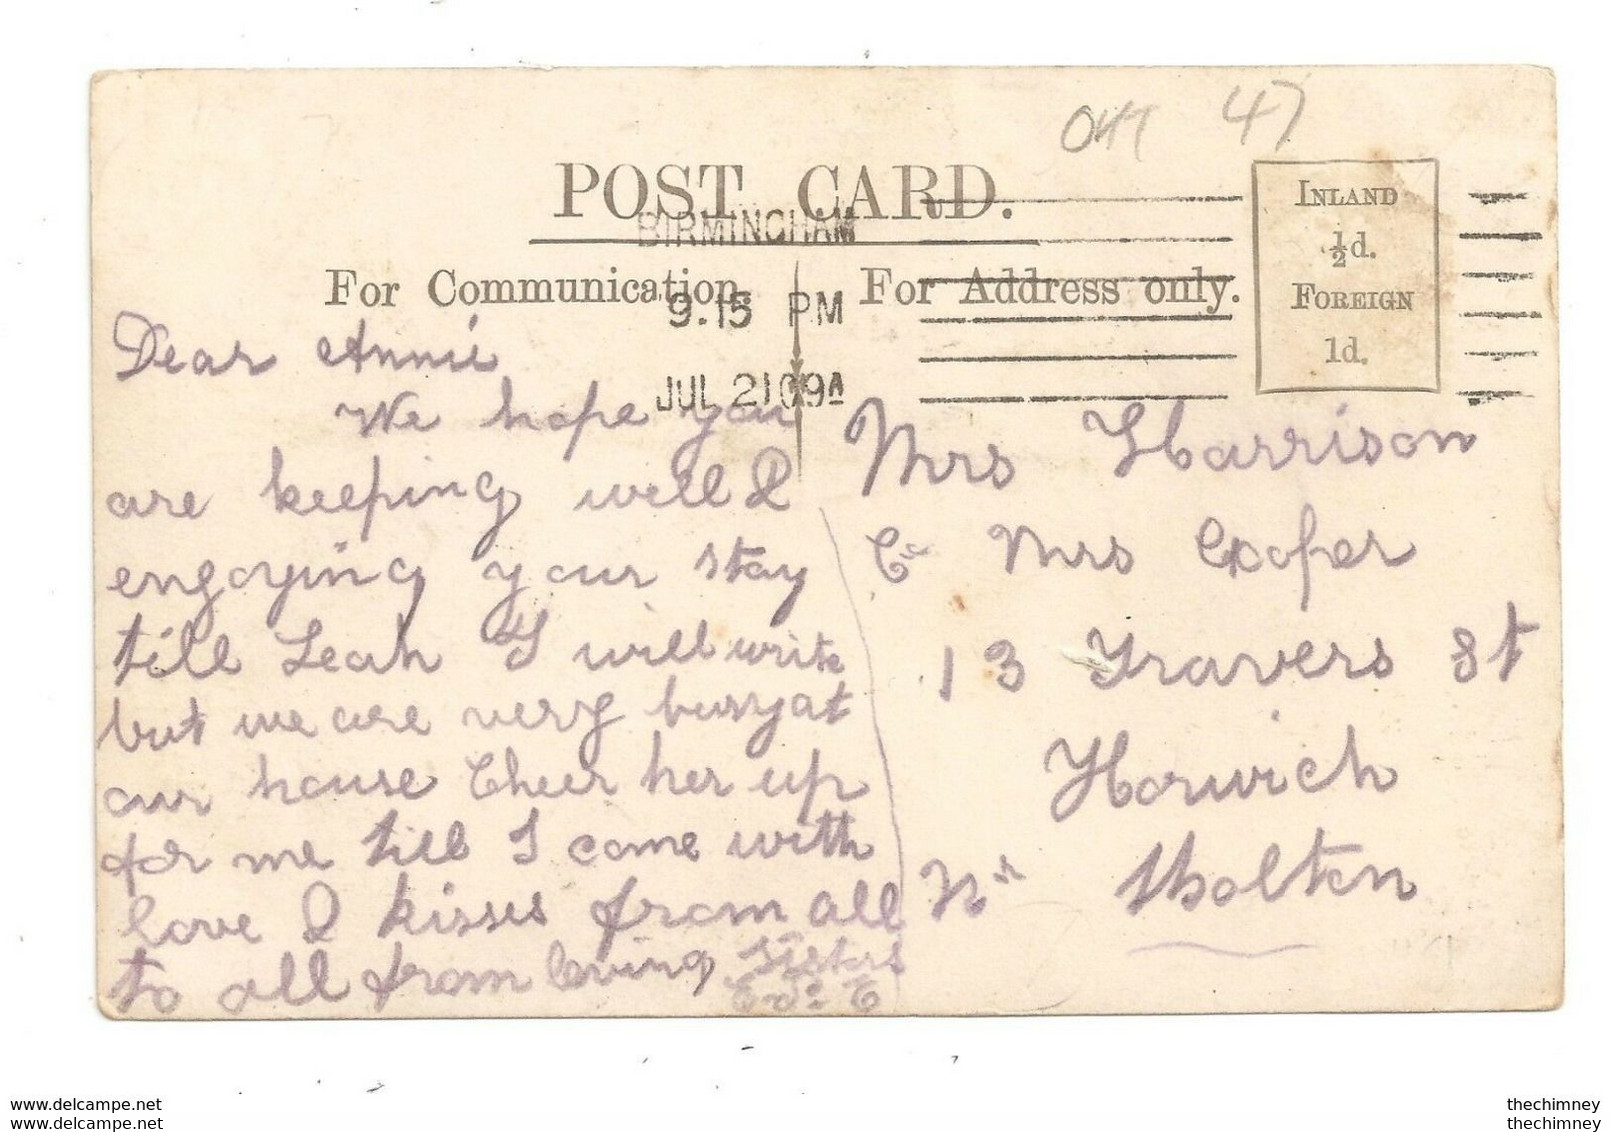 047 47
POST CARD.
BIRMINGHAM
9.15 PM
JUL 21 09A
INLAND
½d.
FOREIGN
1d.
For Communication.
For Address only.
Dear Annie
We hope you
are keeping well &
engoying your stay
till Leah & I will write
but we are very busy at
our house Cheer her up
for me till I come with
love & kisses from all
to all from loving sisters
Mrs Harrison
C/o Mrs Cooper
13 Travers St
Horwich
Nr Bolton
www.delcampe.net
www.delcampe.net
thechimney
thechimney